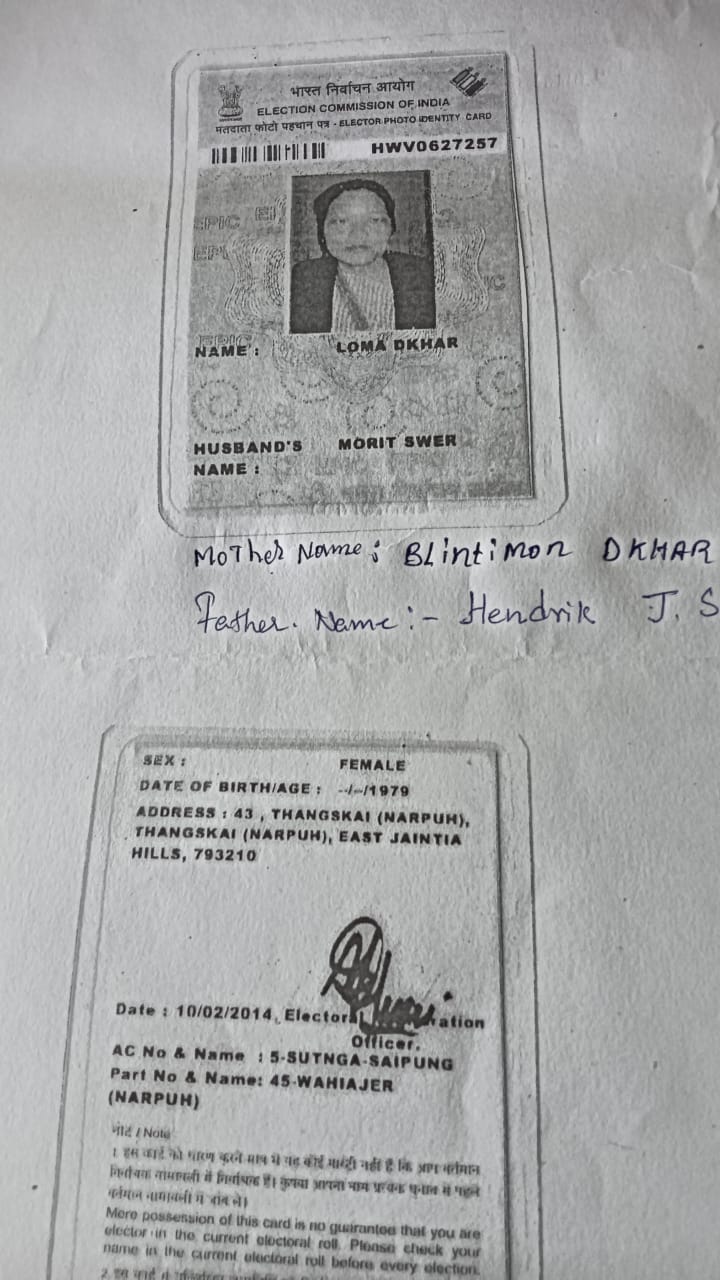 भारत निर्वाचन आयोग
ELECTION COMMISSION OF INDIA
मतदाता फोटो पहचान पत्र - ELECTOR PHOTO IDENTITY CARD
HWV0627257
EPIC
NAME : LOMA DKHAR
HUSBAND'S MORIT SWER
NAME :
Mother Name : BLintiMon DKHAR
Father. Name :- Hendrik J. S
SEX : FEMALE
DATE OF BIRTH/AGE : --/--/1979
ADDRESS : 43 , THANGSKAI (NARPUH),
THANGSKAI (NARPUH), EAST JAINTIA
HILLS, 793210
Date : 10/02/2014, Electoral
Officer.
AC No & Name : 5-SUTNGA-SAIPUNG
Part No & Name: 45-WAHIAJER
(NARPUH)
नोट / Note
1. इस कार्ड को धारण करने मात्र से यह कोई गारंटी नहीं है कि आप वर्तमान
निर्वाचक नामावली में निर्वाचक हैं। कृपया अपना नाम प्रत्येक चुनाव से पहले
वर्तमान नामावली में जांच लें।
Mere possession of this card is no guarantee that you are
elector in the current electoral roll. Please check your
name in the current electoral roll before every election.
2. इस कार्ड में